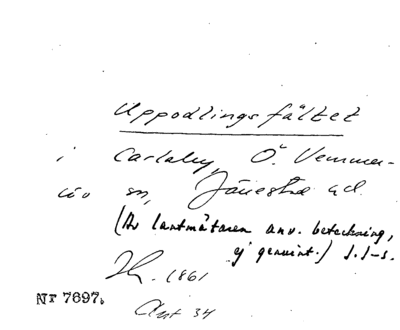 Uppodlingsfältet
i Carlaby, Ö. Vemmer-
löv sn, Järrestad hd.
(Av lantmätaren anv. beteckning,
ej genuint.) I.I-s.
1861
Nr 7697.
Akt 34